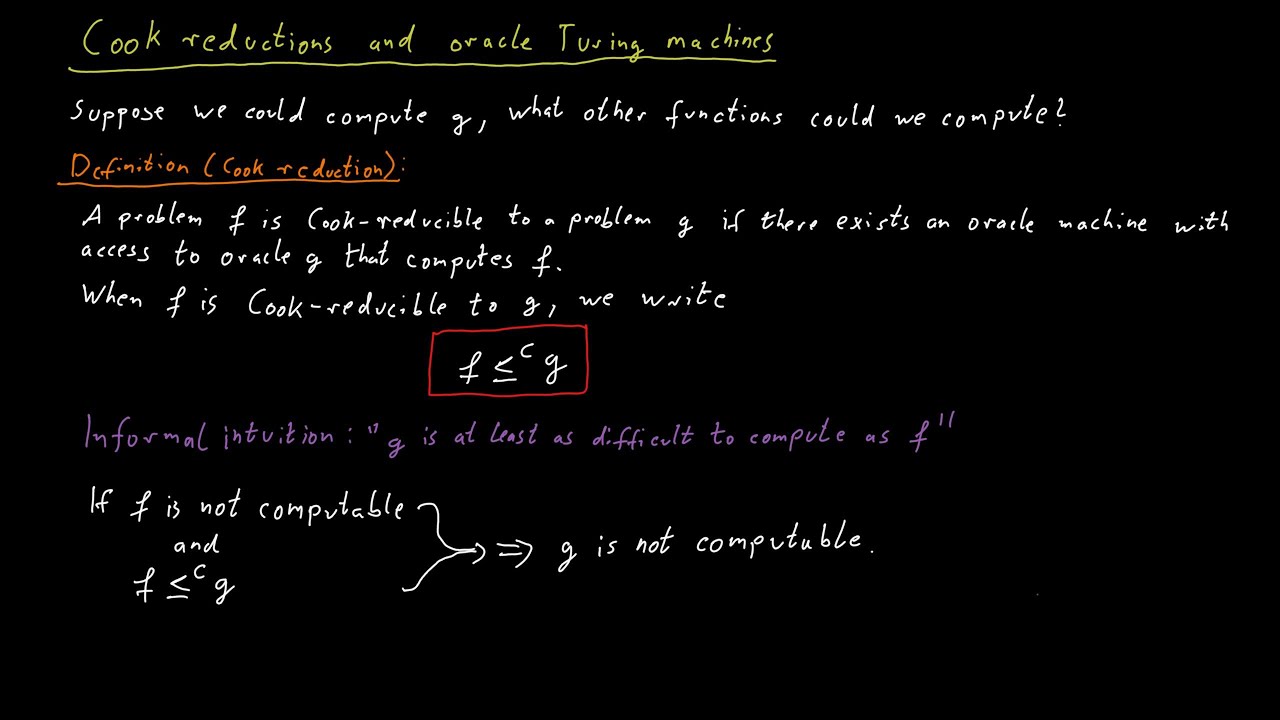 Cook reductions and oracle Turing machines
Suppose we could compute g, what other functions could we compute?
Definition (Cook reduction):
A problem f is Cook-reducible to a problem g if there exists an oracle machine with
access to oracle g that computes f.
When f is Cook-reducible to g, we write
f ≤ᶜ g
Informal intuition: "g is at least as difficult to compute as f"
If f is not computable
and
f ≤ᶜ g
⇒ g is not computable.